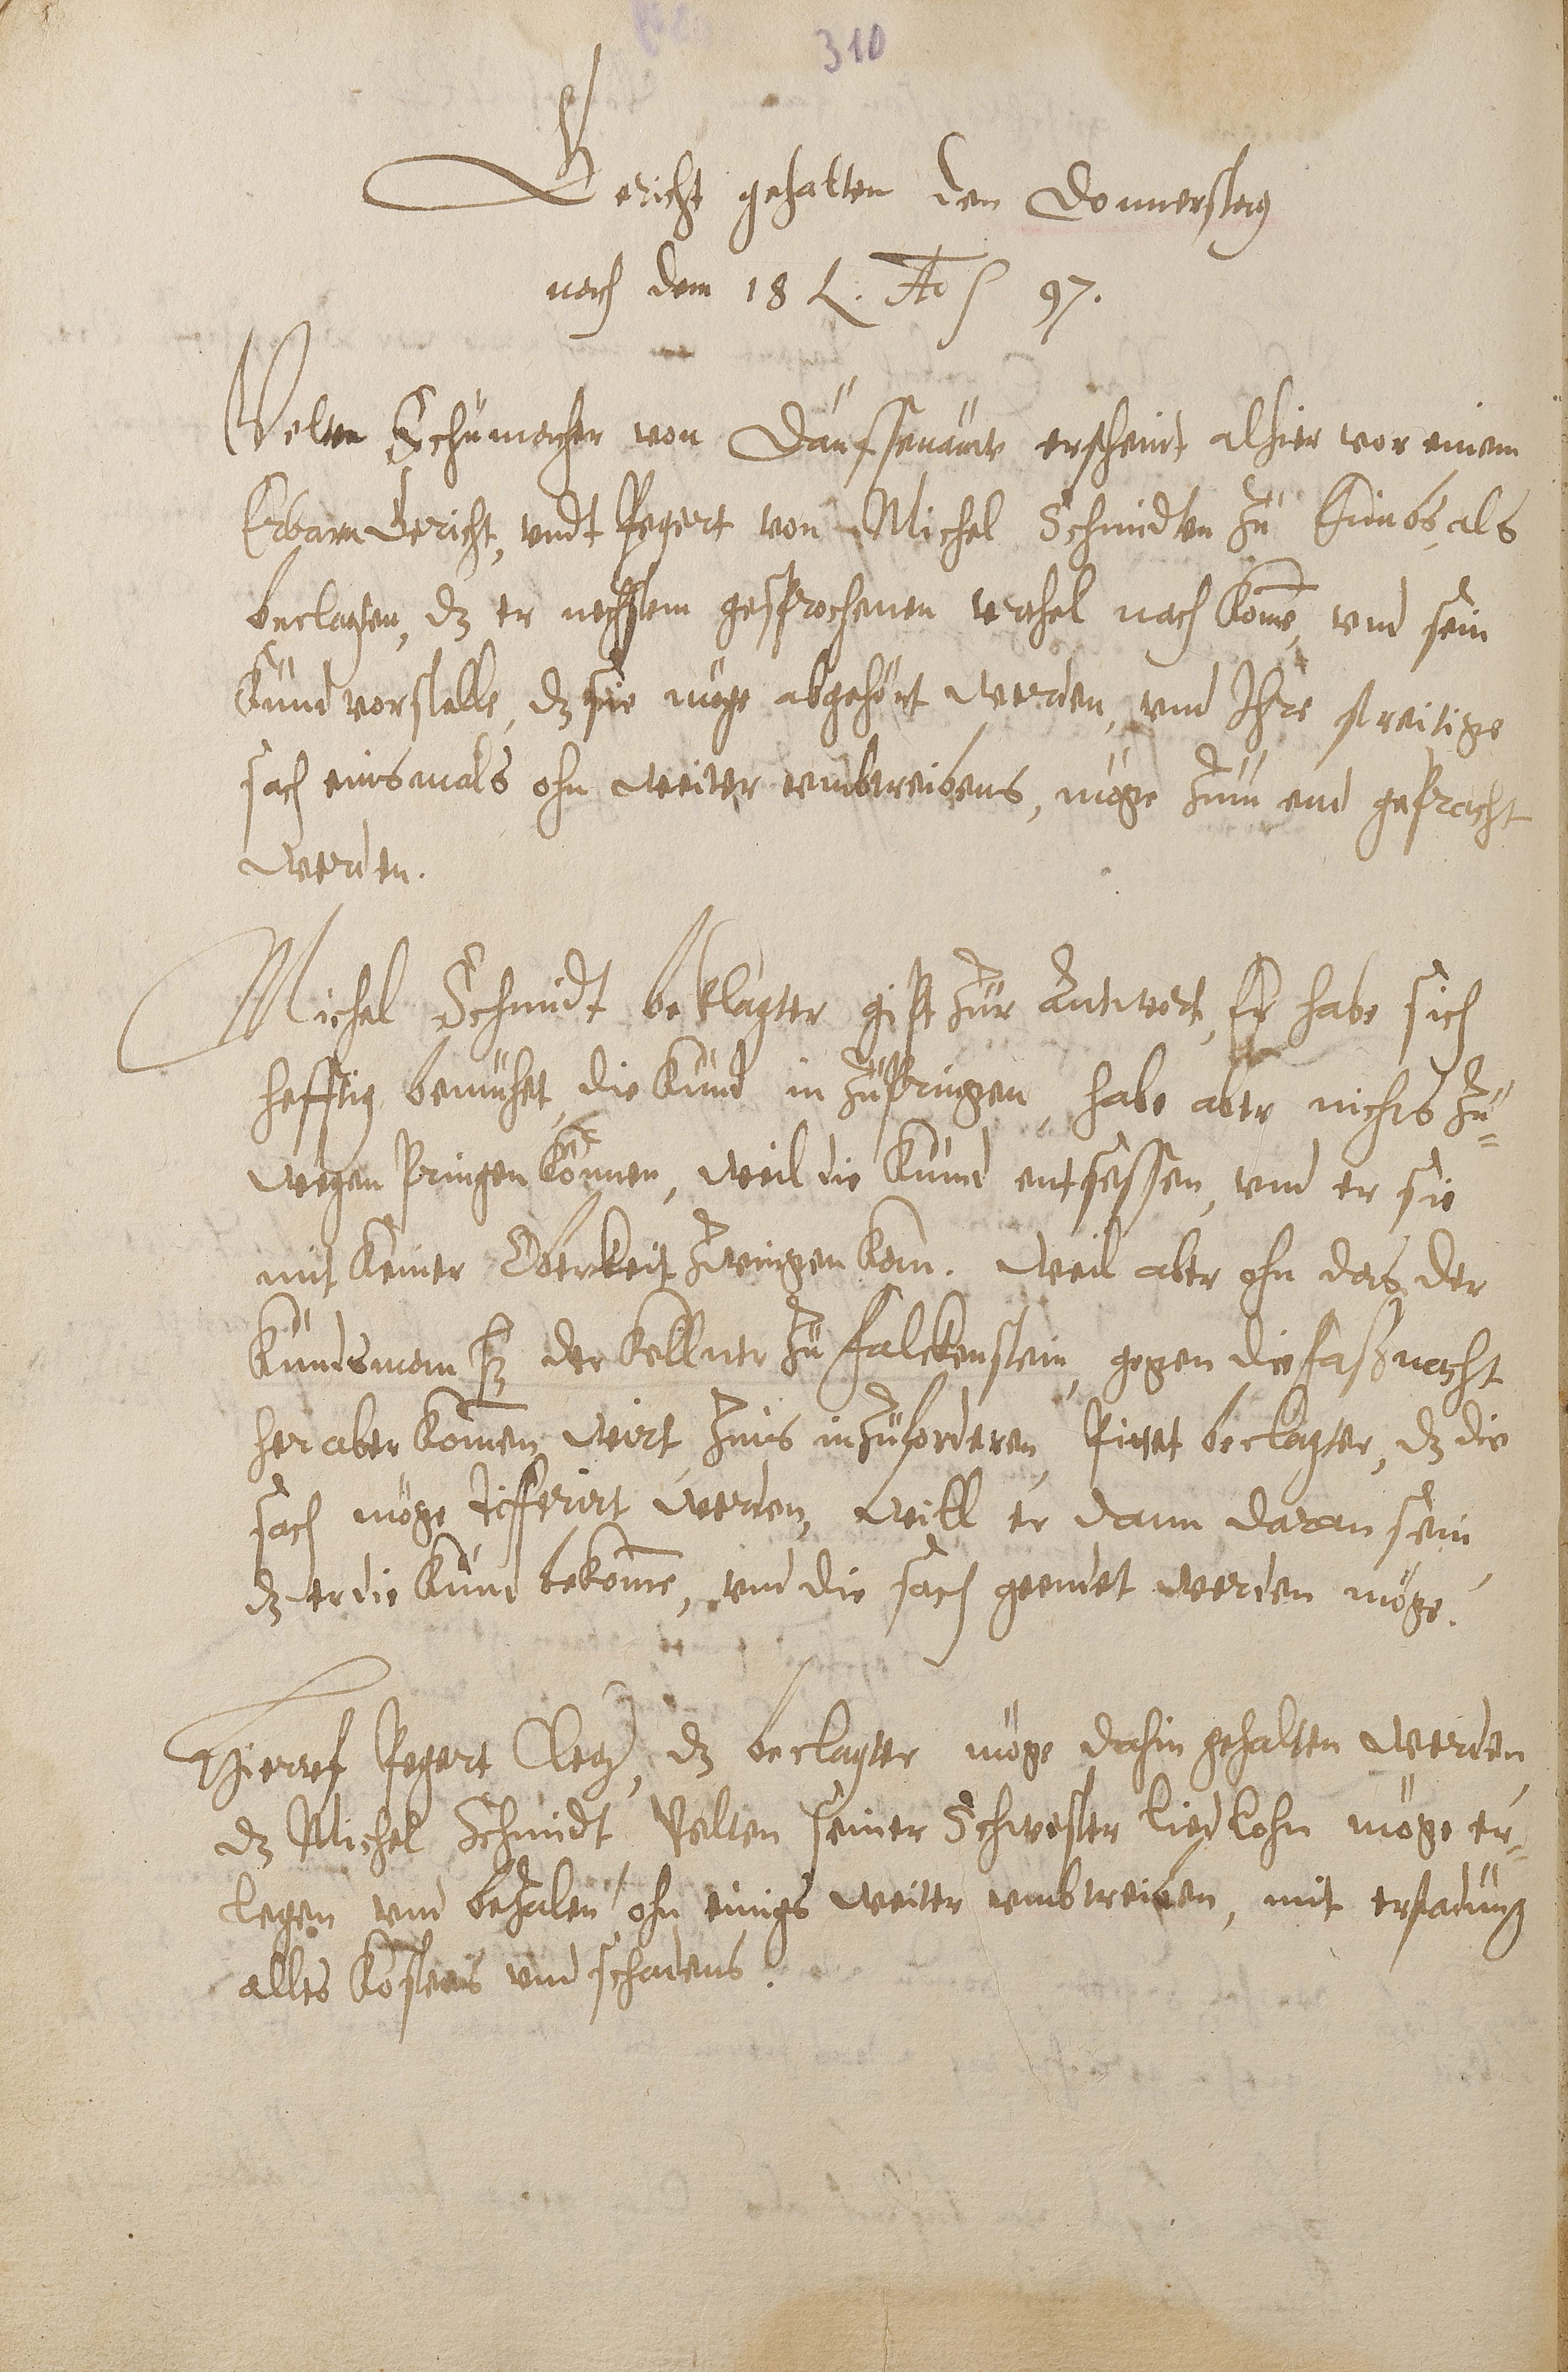 310
Gericht gehalten den Donnerstag
nach dem 18 t. Ao 97.
Velten Schümacher von Daüssenaüw erscheint alhier vor einem
Erbarn Gericht, vndt Pegert von Michel Schmidten zü als
beclagten, dz er nechstem gesprochenen vrthel nach kome, vnd sein
Künd vorstelle, dz sie möge abgehört werden, vnd Ihre streitige
sach einsmals ohn weiter vmbtreibens, möge züm end gepracht
werden.
Michel Schmidt beklagter gibt zür Antwort, Er habe sich
hefftig bemühet, die Künd in züpringen, habe aber nichts zü=
wegen pringen können, weil die Künd entsessen, vnd er sie
mit keiner Oberkeit zwingen kan. Weil aber ohn das der
Kündsman der Kellner zü Falckenstein, gegen die faßnacht
heraber komen wirt, zins inzüforderen, Pittet beclagter, dz die
sach möge differirt werden, will er dann daran sein
dz er die Künd bekome, vnd die sach geendet werden möge.
Hieruf Pegert Cleg, dz beclagter möge dahin gehalten werden
dz Michel Schmidt Velten seiner Schwester Liedlohn möge er=
legen vnd bezalen ohn einigs weiter vmbtreiben, mit erstadüng
alles Kostens vnd schadens.